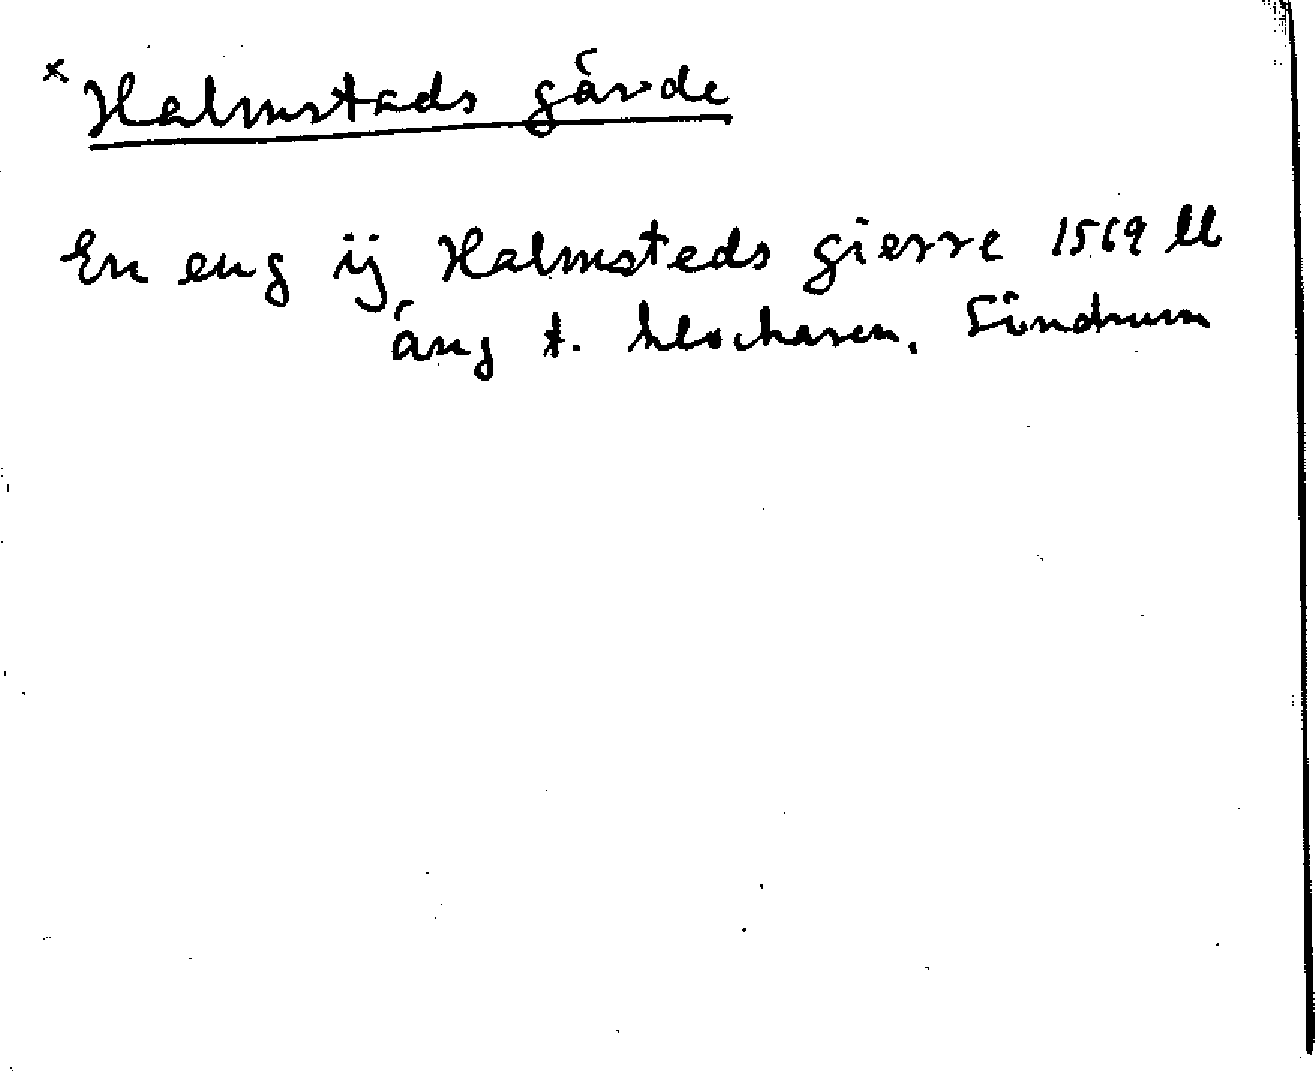 x Halmstads gärde
En eng ij Halmsteds gierre 1569 ll
äng t. klockaren, Söndrum